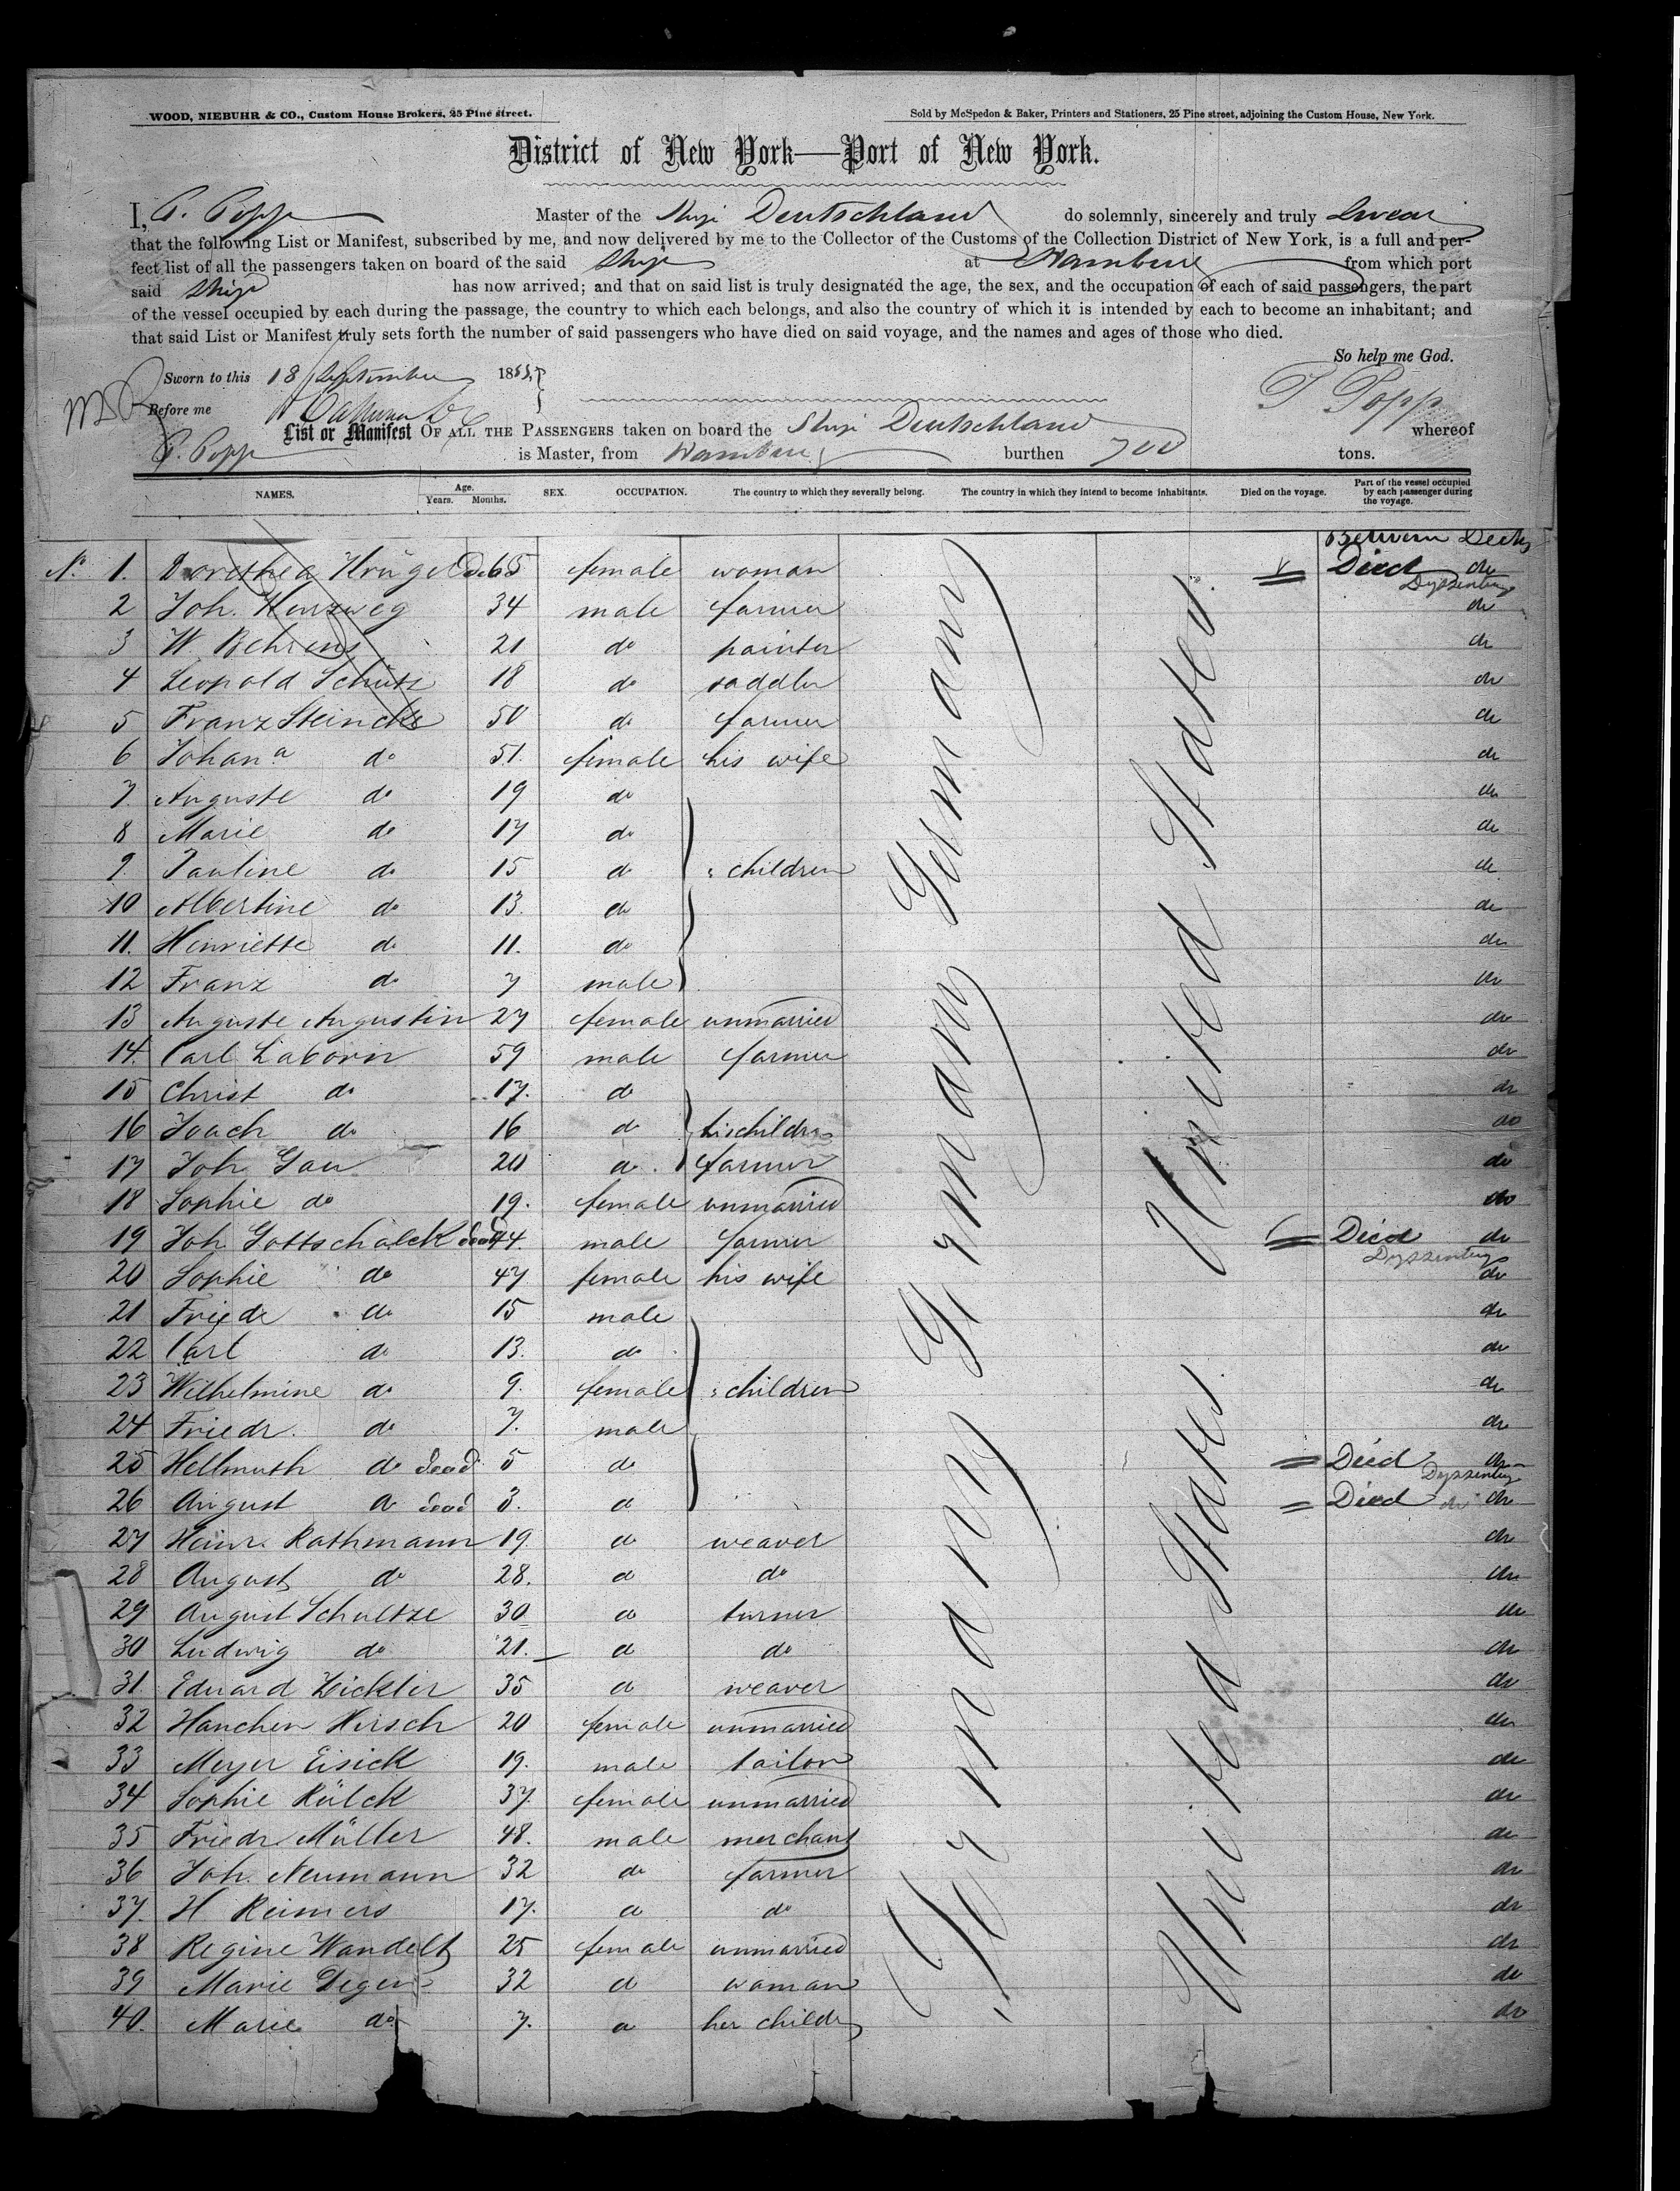 WOOD, NIEBUHR & CO., Custom House Brokers, 25 Pine street.
Sold by McSpedon & Baker, Printers and Stationers, 25 Pine street, adjoining the Custom House, New York.
District of New York—Port of New York.
I, P. Popp Master of the Ship Deutschland do solemnly, sincerely and truly swear
that the following List or Manifest, subscribed by me, and now delivered by me to the Collector of the Customs of the Collection District of New York, is a full and per-
fect list of all the passengers taken on board of the said Ship at Hamburg from which port
said Ship has now arrived; and that on said list is truly designated the age, the sex, and the occupation of each of said passengers, the part
of the vessel occupied by each during the passage, the country to which each belongs, and also the country of which it is intended by each to become an inhabitant; and
that said List or Manifest truly sets forth the number of said passengers who have died on said voyage, and the names and ages of those who died.
So help me God.
Sworn to this 18 September 185
Before me
P Popp
List or Manifest OF ALL THE PASSENGERS taken on board the Ship Deutschland whereof
P. Popp is Master, from Hamburg burthen 700 tons.
NAMES. Age. Years. Months. SEX. OCCUPATION. The country to which they severally belong. The country in which they intend to become inhabitants. Died on the voyage. Part of the vessel occupied by each passenger during the voyage.
Between Decks
No. 1. Dorothea Krüger 65 female woman Died do
Dyssentery
2 Joh. Herzweg 34 male farmer do
3 W. Behrens 21 do painter do
4 Leopold Schütz 18 do saddler do
5 Franz Steincke 50 do farmer do
6 Johana do 51. female his wife do
7. Auguste do 19 do do
8 Marie do 17 do do
9. Pauline do 15 do children do
10 Albertine do 13. do do
11. Henriette do 11. do do
12 Franz do 7 male do
13 Auguste Augustin 27 female unmarried do
14. Carl Laborin 59 male farmer do
15 Christ do 17. do do
16 Joach do 16 do his children do
17 Joh Gau 20 do farmer do
18 Sophie do 19. female unmarried do
19 Joh Gottschalck dead 44. male farmer Died do
Dyssentery
20 Sophie do 47 female his wife do
21 Friede do 15 male do
22 Carl do 13. do do
23 Wilhelmine do 9. female children do
24 Friedr. do 7. male do
25 Hellmuth do dead 5 do Died do
Dyssentery
26 August do dead 3. do Died do do
27 Heinr. Rathmann 19. do weaver do
28 August do 28. do do do
29 August Schultze 30 do turner do
30 Ludwig do 21. do do do
31. Eduard Zickler 35 do weaver do
32 Hanchen Hirsch 20 female unmarried do
33 Meyer Eisick 19. male tailor do
34 Sophie Rülck 37. female unmarried do
35 Friedr Müller 48. male merchant do
36 Joh. Neumann 32 do farmer do
37. H Reimers 17. do do do
38 Regine Wandelt 25 female unmarried do
39 Marie Degen 32 do woman do
40. Marie do 7. do her child do
Germany Germany Germany
United States United States.